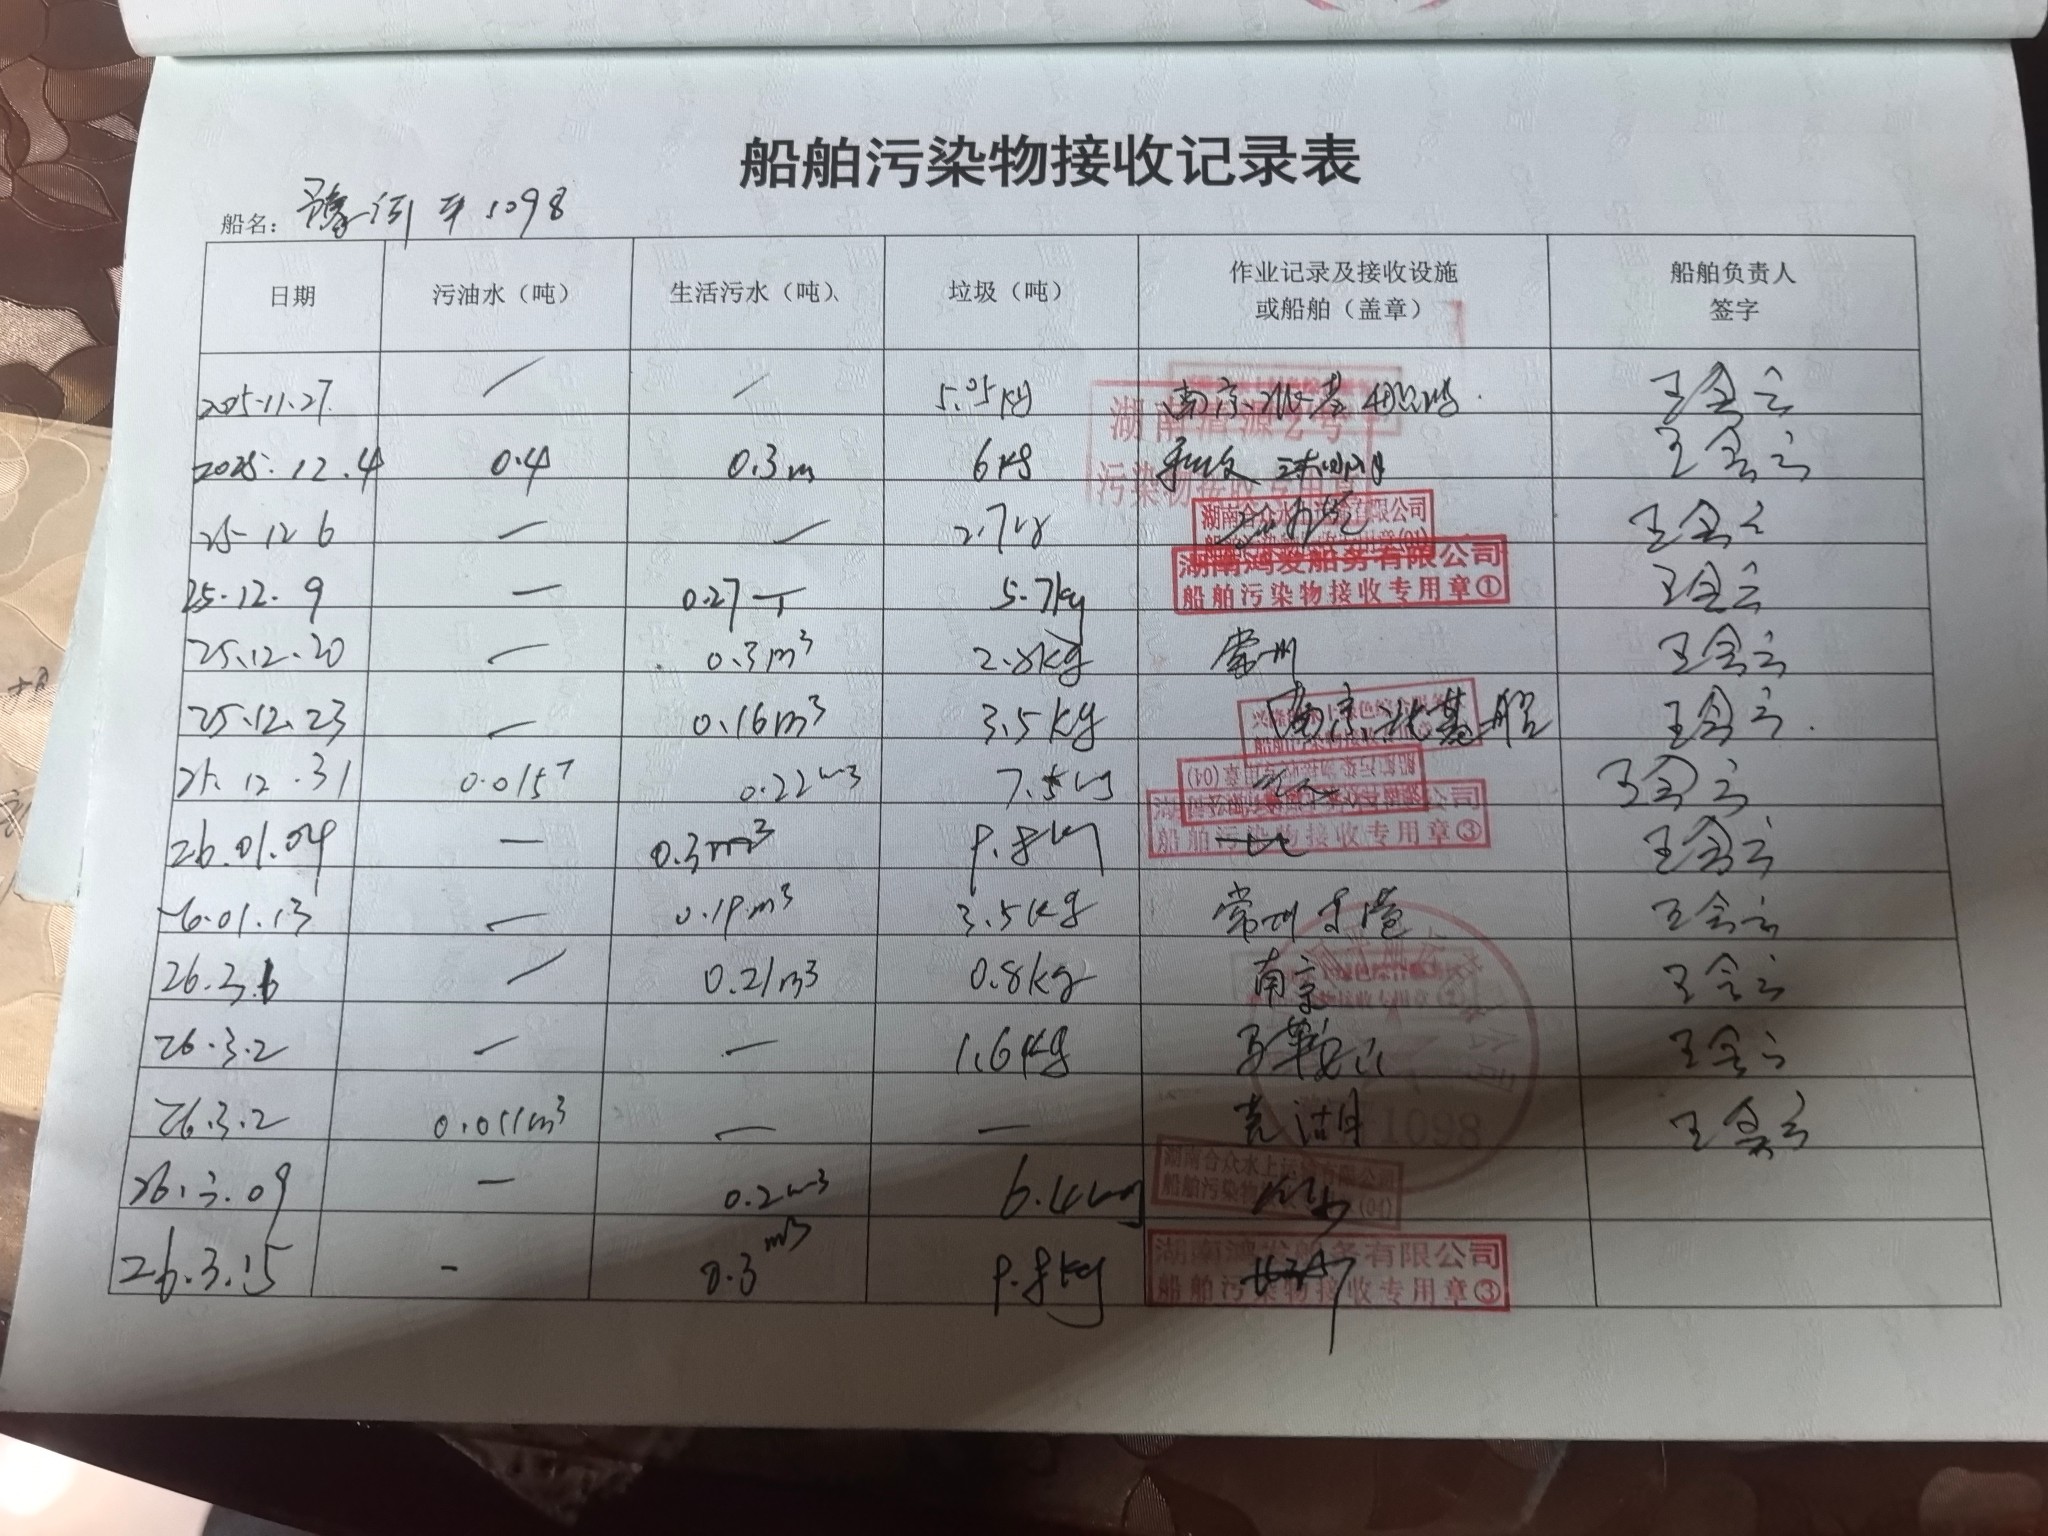 船舶污染物接收记录表
船名: 豫河平1098
日期 污油水（吨） 生活污水（吨）、 垃圾（吨） 作业记录及接收设施 船舶负责人
或船舶（盖章） 签字
2025.11.27. / / 5.05kg 南京 王会云
2025.12.4 0.4 0.3m 6kg 王会云
湖南 源 号
污染物接收专用章
25-12 6 — — 2.7kg 王会云
湖南合众水上运输有限公司
湖南鸿发船务有限公司
25.12.9 — 0.27T 5.7kg 船舶污染物接收专用章① 王会云
25.12.20 — 0.3m³ 2.8kg 常州 王会云
25.12.23 — 0.16m³ 3.5kg 南京 王会云.
25.12.31 0.015T 0.22m³ 7.5kg 王会云
26.01.04 — 0.3m³ 9.8kg 船舶污染物接收专用章③ 王会云
26.01.13 — 0.19m³ 3.5kg 常州 王会云
26.3.1 / 0.21m³ 0.8kg 南京 王会云
26.3.2 — — 1.6kg 马鞍山 王会云
26.3.2 0.011m³ — — 芜湖 1098 王会云
湖南合众水上运输有限公司
26.3.09 — 0.2m³ 6.4kg 船舶污染物 (04)
湖南鸿发船务有限公司
26.3.15 - 0.3m³ 9.8kg 船舶污染物接收专用章③